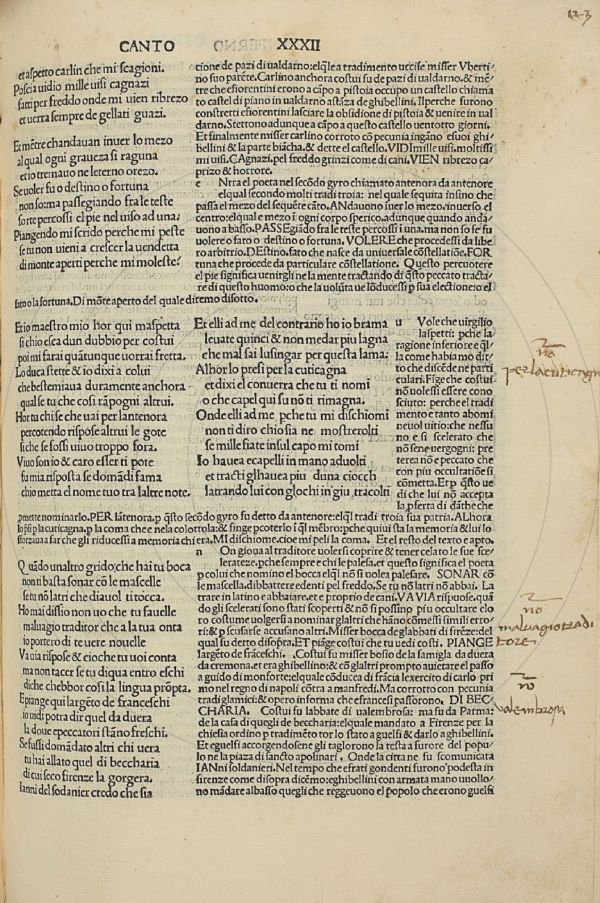 CANTO XXXII
et aspetto carlin che mi scagioni.
Poscia uidio mille uisi cagnazi
facti per freddo onde mi uien ribrezo
et uerra sempre de gellati guazi.
Et mētre chandauan inuer lo mezo
al qual ogni graueza si raguna
et io tremauo ne leterno orezo.
Se uoler fu o destino o fortuna
non so: ma passegiando fra le teste
forte percossi el pie nel uiso ad una.
Piangendo mi scrido perche mi peste
se tu non uieni a crescer la uendetta
di monte aperti perche mi moleste?
tione de pazi di ualdarno: elq̄le a tradimento uccise misser Vberti
no suo parēte. Carlino anchora costui fu de pazi di ualdarno. & mē
tre che fiorentini erono a cāpo a pistoia occupo un castello chiama
to castel di piano in ualdarno a stāza de ghibellini. Il perche furono
constretti efiorentini lasciare la obsidione di pistoia & uenire in ual
darno. Stettono adunque a cāpo a questo castello uentotto giorni.
Et finalmente misser carlino corroto cō pecunia ingāno esuoi ghi
bellini & la parte biācha, & dette el castello. VIDI mille uisi, moltissi
mi uisi. CAgnazi, pel freddo grinzi come di cani, VIEN ribrezo ca
prizo & horrore.
e Ntra el poeta nel secōdo gyro chiamato antenora da antenore
elqual secondo molti tradi troia: nel quale sequita insino che
passa el mezo del sequēte cāto. ANdauono iuer lo mezo, inuerso el
centro: elqual e mezo i ogni corpo sperico, adunque quando anda
uono a basso. PASSEgiādo fra le teste percossi i una, ma non so se fu
uolere o fato o destino o fortuna. VOLERE che procedessi da libe
ro arbitrio. DEstino, fato che nasce da uniuersale cōstellatiōe. FOR
tuna che procede da particulare cōstellatione. Questo percuotere
el pie significa uenirgli ne la mente tractando di q̄sto peccato tracta
re di questo huomo: che la uolūta ue lōducessi p sua electione: o el
fato o la fortuna. Di mōte aperto del quale diremo disotto.
Et io maestro mio hor qui maspetta
si chio esca dun dubbio per costui
poi mi farai quātunque uorrai fretta.
Lo duca stette & io dixi a colui
che bestemiaua duramente anchora
qual se tu che cosi rāpogni altrui.
Hor tu chi se che uai per lantenora
percotendo rispose altrui le gote
si che se fossi uiuo troppo fora.
Viuo son io & caro esser ti pote
fu mia risposta se domādi fama
chio metta el nome tuo tra laltre note.
Et elli ad me del contrario ho io brama
leuate quinci & non me dar piu lagna
che mal sai lusingar per questa lama:
Alhor lo presi per la cuticagna
et dixi el conuerra che tu ti nomi
o che capel qui su nō ti rimagna.
Onde elli ad me pche tu mi dischiomi
non ti diro chio sia ne mosterrolti
se mille fiate insul capo mi tomi
Io hauea ecapelli in mano aduolti
et tracti glhauea piu duna ciocch
latrando lui con glochi in giu, tracolti
u Vole che virgilio
laspetti: pche la
ragione inferiore e q̄l
la come habia mo dit
to che discēde ne parti
culari. Fige che costui
nō uolessi essere cono
sciuto: perche el tradi
mento e tanto abomi
neuol uitio: che nessu
no e si scelerato che
nō se ne uergogni: pre
terea nō e peccato che
con piu occultatiōe si
cōmetta. Et p q̄sto ue
di che lui nō accepta
la pferta di dāthe che
pmette nominarlo. PER lātenora, p q̄sto secōdo gyro fu detto da antenore: elq̄l tradi troia sua patria. ALhora
n On gioua al traditore uolersi coprire & tener celato le sue sce
lerateze, pche sempre e chi le palesa, et questo significa el poeta
p colui che nomino el bocca elq̄l nō si uolea palesare. SONAR cō
le mascella, dibattere edenti pel freddo. Se tu nō latri nō abbai. La
trare in latino e abbaiare, et e proprio de cani, VA VIA rispuose, quā
do gli scelerati sono stati scoperti & nō si possino piu occultare elo
ro costume uolgersi a nominar glaltri che hāno cōmessi simili erro
ri: & p scusarse accusano altri. Misser bocca de glabbati di firēze: del
qual fu detto disopra. ET piāge costui che tu uedi costi. PIANGE
largēto de frāceschi. Costui fu misser bosso de la famiglia da duera
da cremona, et era ghibellino: & cō glaltri prompto auietare el passo
a guido di monforte: elquale cōducea di frācia lexercito di carlo pri
mo nel regno di napoli cōtra a manfredi. Ma corrotto con pecunia
tradi glamici: & opero informa che efrancesi passorono. DI BEC
CHARIA. Costui fu labbate di ualenbrosa: ma fu da Parma:
de la casa di quegli de beccharia: elquale mandato a Firenze per la
chiesa ordino p tradimēto tor lo stato a guelfi & darlo a ghibellini.
Et eguelfi accorgendosene gli taglorono la testa a furore del popu
lo ne la piaza di sancto apolinari. Onde la citta ne fu scomunicata
IANni soldanieri. Nel tempo che efrati gondenti furono podesta in
firenze come disopra dicēmo: eghibellini con armata mano uuollo/
no mādare albasso quegli che reggeuono el popolo che erono guelfi
Quādo un altro grido, che hai tu boca
non ti basta sonar cō le mascelle
se tu nō latri che diauol ti tocca.
Ho mai dissio non uo che tu fauelle
maluagio traditor che a la tua onta
io portero di te uere nouelle
Va uia rispose & cio che tu uoi conta
ma non tacer se tu di qua entro eschi
di che hebbe hor cosi la lingua prōpta.
El piange qui largēto de franceschi
io uidi potra dir quel da duera
la doue epeccatori stāno freschi.
Se fussi domādato altri chi uera
tu hai allato quel di beccharia
di cui seco firenze la gorgera.
Ianni del sodanier credo che sia
no
no
maluagio tradi
tore
no